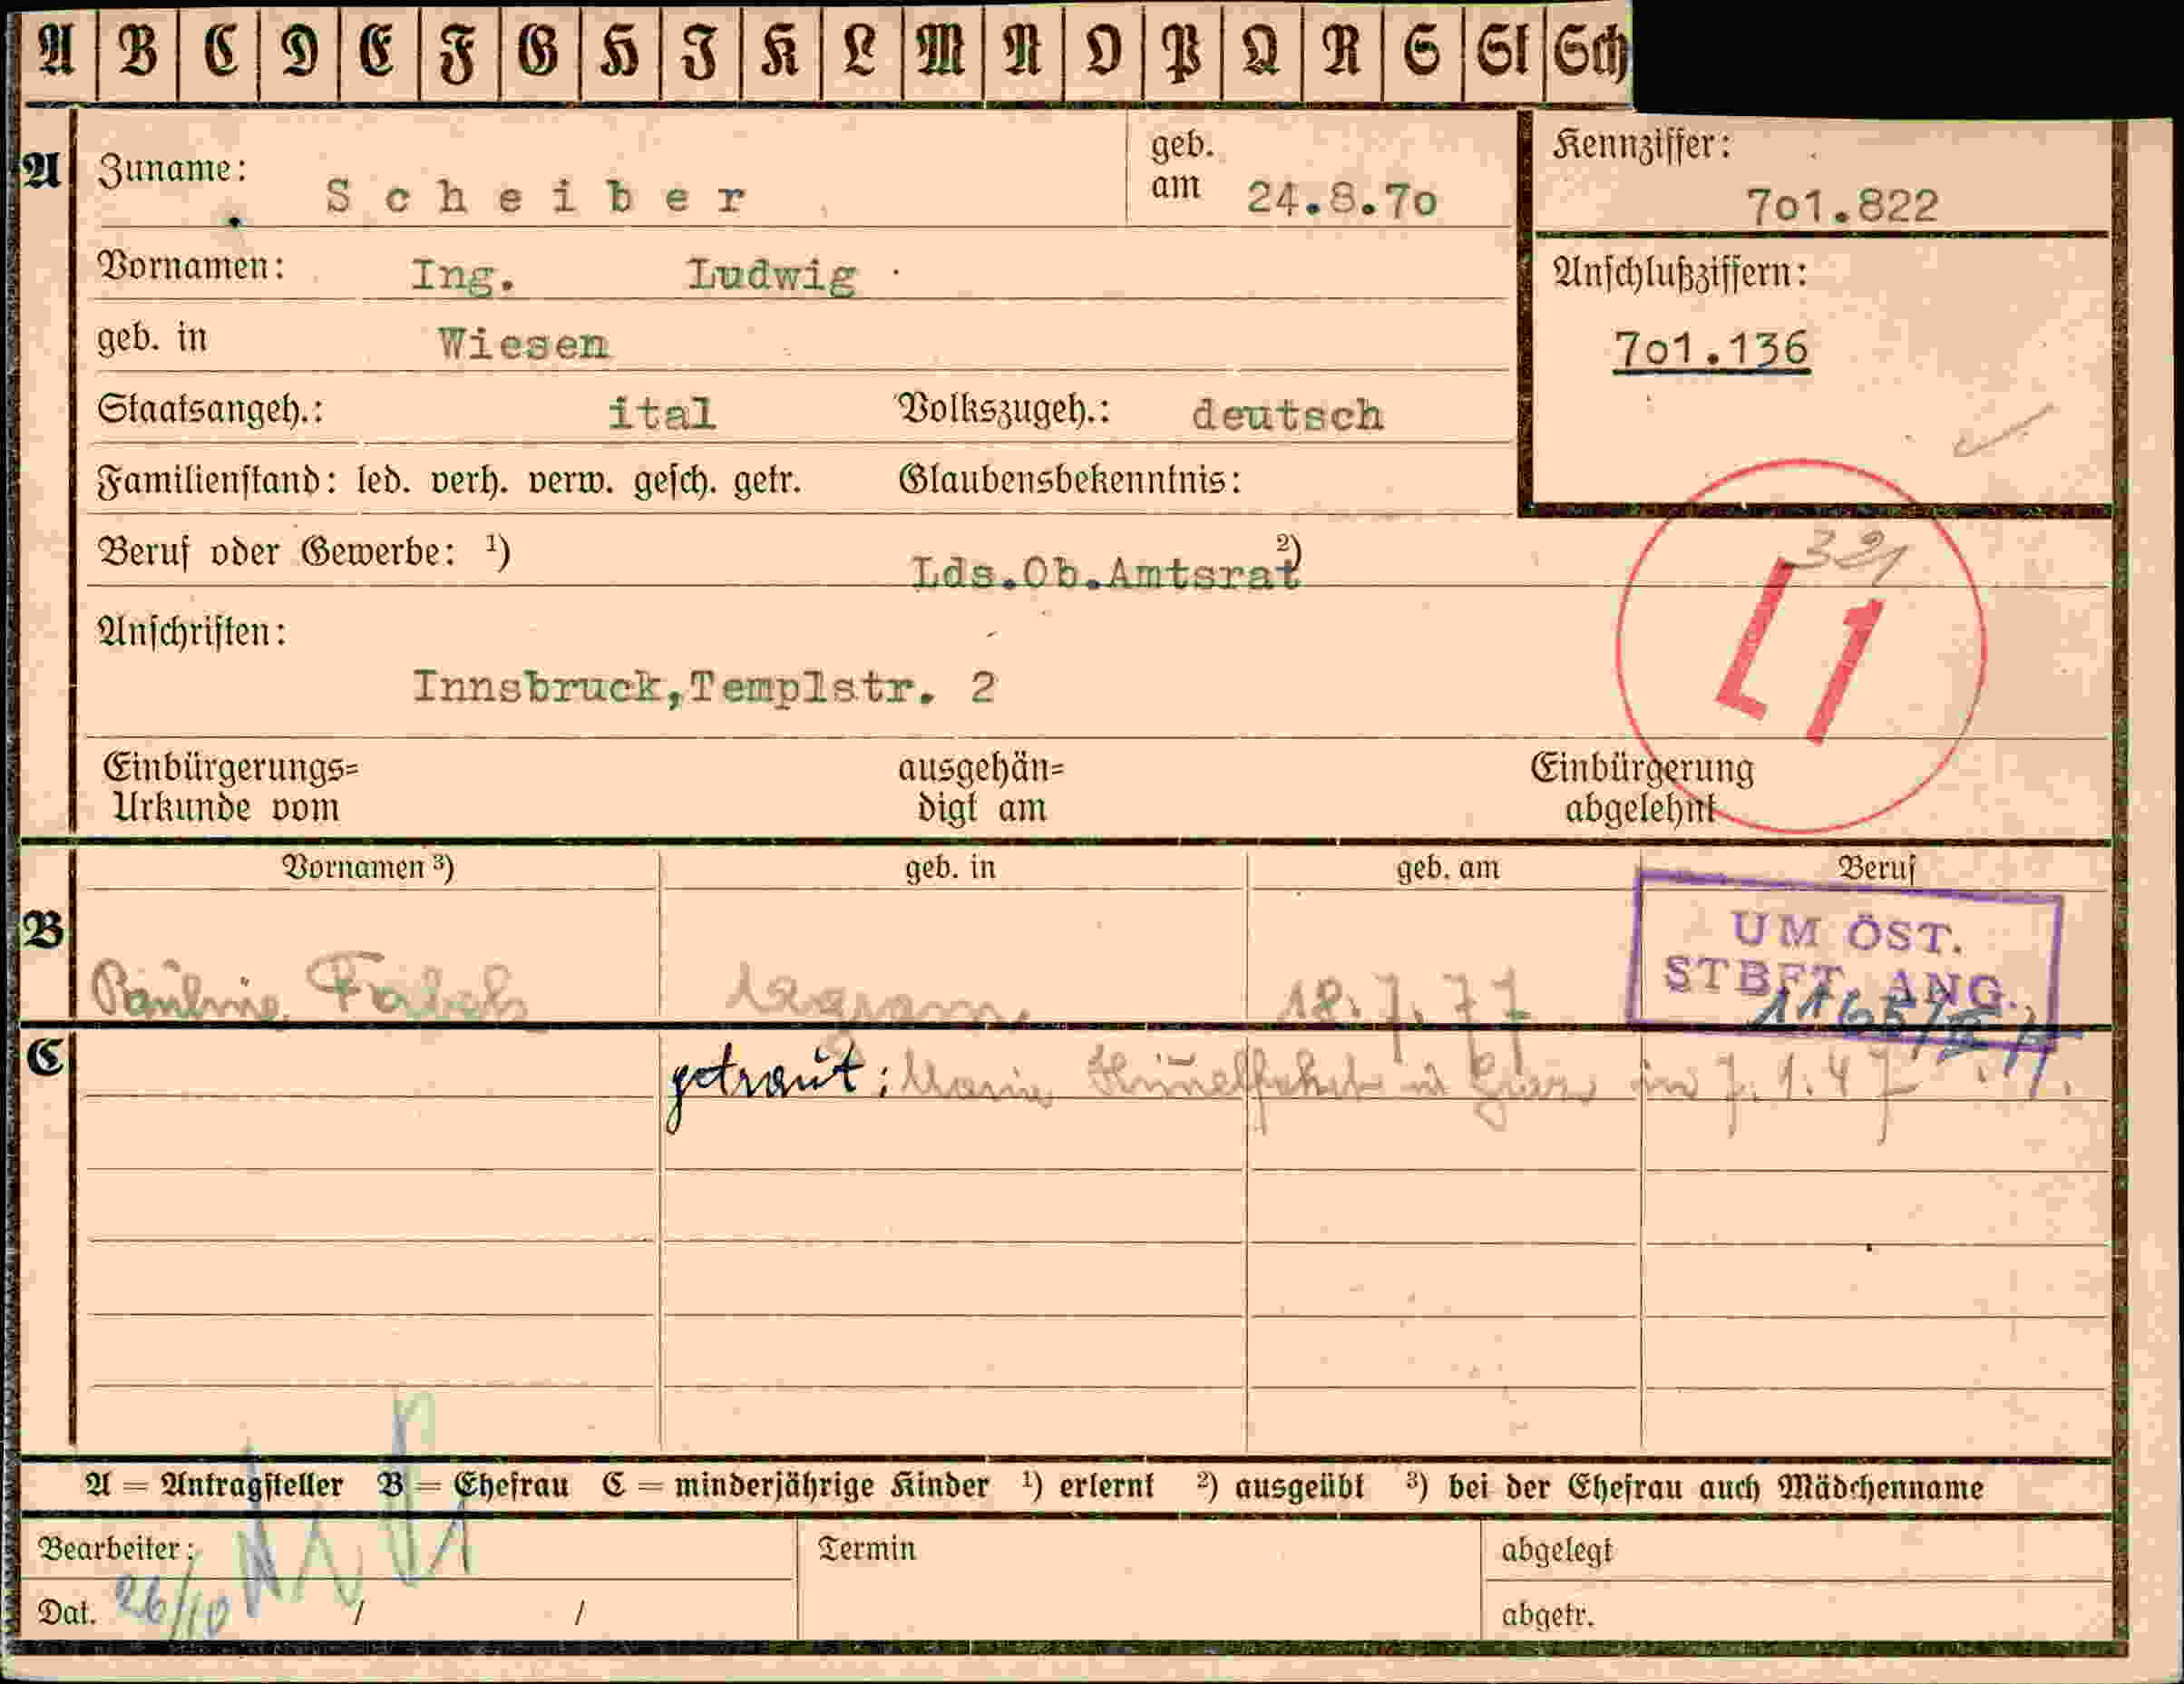 A B C D E F G H I K L M N O P Q R S St Sch
A
Zuname: Scheiber
geb. am 24.8.7o
Kennziffer: 7o1.822
Vornamen: Ing. Ludwig
Anschlußziffern: 7o1.136
geb. in Wiesen
Staatsangeh.: ital Volkszugeh.: deutsch
Familienstand: led. verh. verw. gesch. getr. Glaubensbekenntnis:
Beruf oder Gewerbe: ¹) ²) Lds.Ob.Amtsrat
391
L1
Anschriften:
Innsbruck,Templstr. 2
Einbürgerungs=
Urkunde vom
ausgehän=
digt am
Einbürgerung
abgelehnt
Vornamen ³) geb. in geb. am Beruf
B
UM ÖST.
STBFT. ANG.
Pauline Agram 18.7.77
C
getraut: Maria in Graz 7.1.47
A = Antragsteller B = Ehefrau C = minderjährige Kinder ¹) erlernt ²) ausgeübt ³) bei der Ehefrau auch Mädchenname
Bearbeiter: Termin abgelegt
Dat. 26/10 / / abgetr.